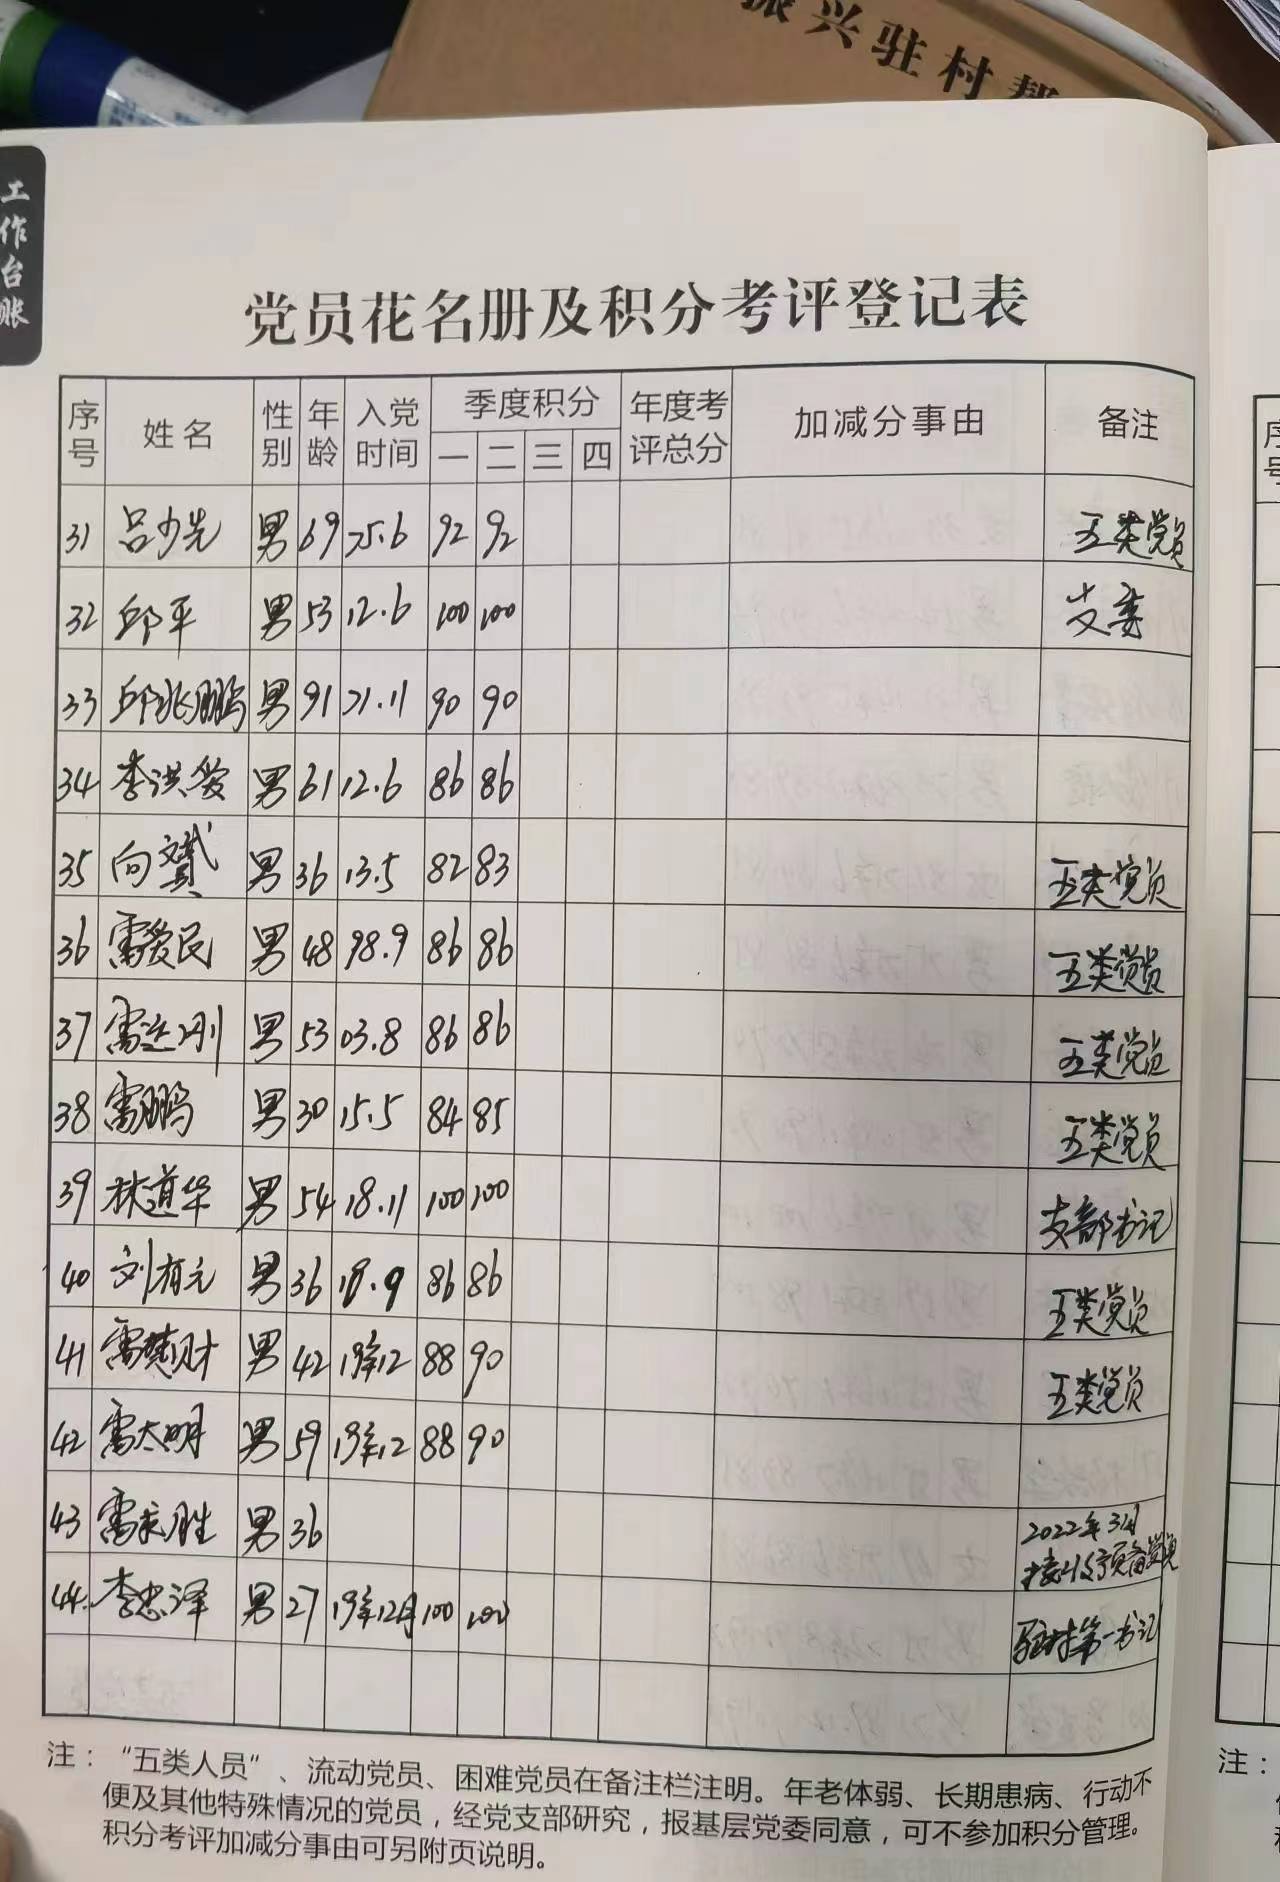 振兴驻村帮
工作台账
党员花名册及积分考评登记表
序号 姓名 性别 年龄 入党时间 季度积分 一 二 三 四 年度考评总分 加减分事由 备注
31 吕少先 男 69 75.6 92 92 五类党员
32 邱平 男 53 12.6 100 100 支委
33 邱兆鹏 男 91 71.11 90 90
34 李洪爱 男 61 12.6 86 86
35 向 男 36 13.5 82 83 五类党员
36 雷爱民 男 48 98.9 86 86 五类党员
37 雷运刚 男 53 03.8 86 86 五类党员
38 雷鹏 男 30 15.5 84 85 五类党员
39 林道华 男 54 18.11 100 100 支部书记
40 刘有元 男 36 18.9 86 86 五类党员
41 雷楚财 男 42 19年12 88 90 五类党员
42 雷太明 男 59 19年12 88 90
43 雷来胜 男 36 2022年3月
接收预备党员
44. 李忠泽 男 27 19年12月 100 100 驻村第一书记
注：“五类人员”、流动党员、困难党员在备注栏注明。年老体弱、长期患病、行动不
便及其他特殊情况的党员，经党支部研究，报基层党委同意，可不参加积分管理。
积分考评加减分事由可另附页说明。
序号
注：